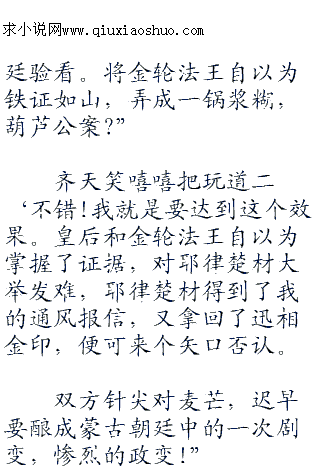 求小说网www.qiuxiaoshuo.com
廷验看。将金轮法王自以为
铁证如山，弄成一锅浆糊，
葫芦公案?”
齐天笑嘻嘻把玩道二
‘不错!我就是要达到这个效
果。皇后和金轮法王自以为
掌握了证据，对耶律楚材大
举发难，耶律楚材得到了我
的通风报信，又拿回了迅相
金印，便可来个矢口否认。
双方针尖对麦芒，迟早
要酿成蒙古朝廷中的一次剧
变，惨烈的政变!”